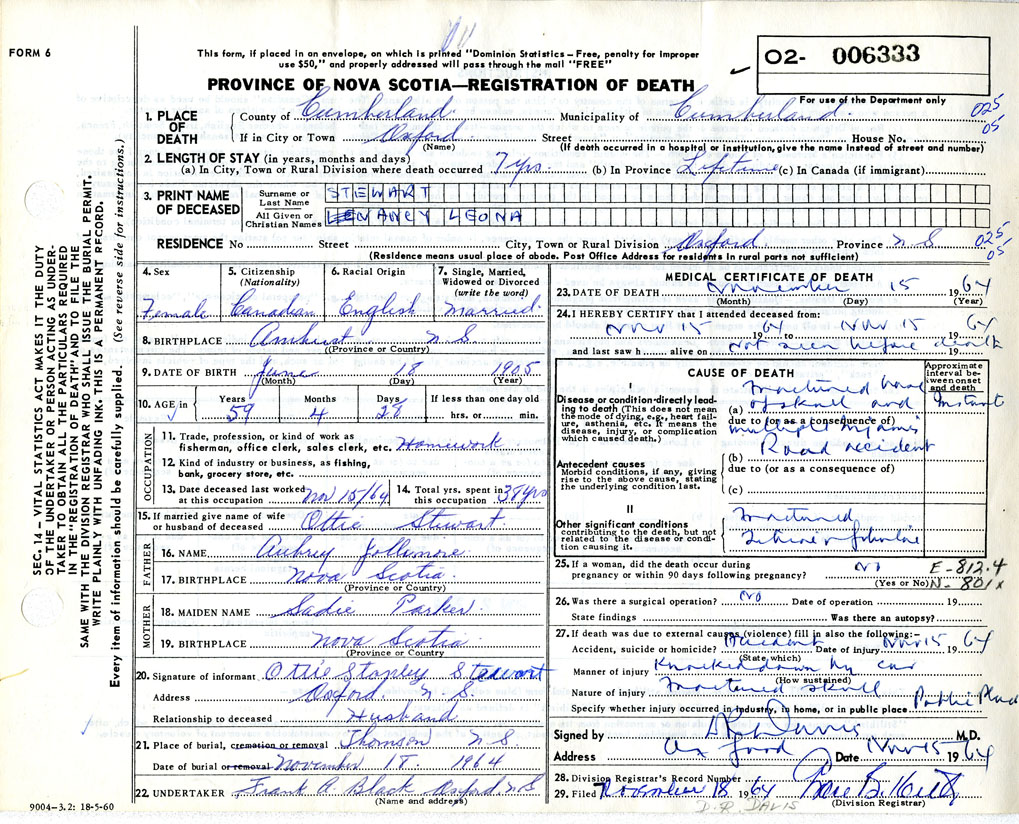 FORM 6
This form, if placed in an envelope, on which is printed "Dominion Statistics – Free, penalty for improper
use $50," and properly addressed will pass through the mail "FREE"
PROVINCE OF NOVA SCOTIA—REGISTRATION OF DEATH
O2- 006333
For use of the Department only
1. PLACE OF DEATH
County of Cumberland Municipality of Cumberland 025
If in City or Town Oxford Street House No. 05
(Name) (If death occurred in a hospital or institution, give the name instead of street and number)
2. LENGTH OF STAY (in years, months and days)
(a) In City, Town or Rural Division where death occurred 7 yrs. (b) In Province Lifetime (c) In Canada (if immigrant)
3. PRINT NAME OF DECEASED
Surname or Last Name STEWART
All Given or Christian Names NANCY LEONA
RESIDENCE No Street City, Town or Rural Division Oxford Province N S 025
05
(Residence means usual place of abode. Post Office Address for residents in rural parts not sufficient)
4. Sex Female
5. Citizenship (Nationality) Canadian
6. Racial Origin English
7. Single, Married, Widowed or Divorced (write the word) Married
8. BIRTHPLACE Amherst N S
(Province or Country)
9. DATE OF BIRTH June 18 1905
(Month) (Day) (Year)
10. AGE in Years 59 Months 4 Days 28 If less than one day old hrs. or min.
OCCUPATION
11. Trade, profession, or kind of work as fisherman, office clerk, sales clerk, etc. Homework
12. Kind of industry or business, as fishing, bank, grocery store, etc.
13. Date deceased last worked at this occupation Nov 15/64
14. Total yrs. spent in this occupation 38 yrs
15. If married give name of wife or husband of deceased Ottie Stewart
FATHER
16. NAME Aubrey Jollimore
17. BIRTHPLACE Nova Scotia
(Province or Country)
MOTHER
18. MAIDEN NAME Sadie Parker
19. BIRTHPLACE Nova Scotia
(Province or Country
20. Signature of informant Ottie Stanley Stewart
Address Oxford N. S.
Relationship to deceased Husband
21. Place of burial, cremation or removal Thomson N S
Date of burial or removal November 17 1964
22. UNDERTAKER Frank A Black Oxford N S
(Name and address)
9004-3.2: 18-5-60
MEDICAL CERTIFICATE OF DEATH
23. DATE OF DEATH November 15 1964
(Month) (Day) (Year)
24. I HEREBY CERTIFY that I attended deceased from:
Nov 15 1964 to Nov 15 1964
and last saw h alive on Not seen before death 19
CAUSE OF DEATH
Approximate interval between onset and death
I
Disease or condition directly leading to death (This does not mean the mode of dying, e.g., heart failure, asthenia, etc. It means the disease, injury, or complication which caused death.)
(a) Fractured base of skull and Instant
due to (or as a consequence of)
multiple injuries
Antecedent causes
Morbid conditions, if any, giving rise to the above cause, stating the underlying condition last.
(b) Road accident
due to (or as a consequence of)
(c)
II
Other significant conditions contributing to the death, but not related to the disease or condition causing it.
Fractured
25. If a woman, did the death occur during pregnancy or within 90 days following pregnancy? No
(Yes or No)
E-812.4
N-801x
26. Was there a surgical operation? No Date of operation 19
State findings Was there an autopsy?
27. If death was due to external causes (violence) fill in also the following:—
Accident, suicide or homicide? Accident Date of injury Nov 15 1964
(State which)
Manner of injury Knocked down by car
(How sustained)
Nature of injury Fractured skull
Specify whether injury occurred in industry, in home, or in public place Public Place
Signed by D R Davis M.D.
Address Oxford Date Nov 15 1964
28. Division Registrar's Record Number
29. Filed November 18 1964
(Division Registrar)
D. R. DAVIS
SEC. 14 – VITAL STATISTICS ACT MAKES IT THE DUTY
OF THE UNDERTAKER OR PERSON ACTING AS UNDER-
TAKER TO OBTAIN ALL THE PARTICULARS REQUIRED
IN THE "REGISTRATION OF DEATH" AND TO FILE THE
SAME WITH THE DIVISION REGISTRAR WHO SHALL ISSUE THE BURIAL PERMIT.
WRITE PLAINLY WITH UNFADING INK. THIS IS A PERMANENT RECORD.
Every item of information should be carefully supplied. (See reverse side for instructions.)